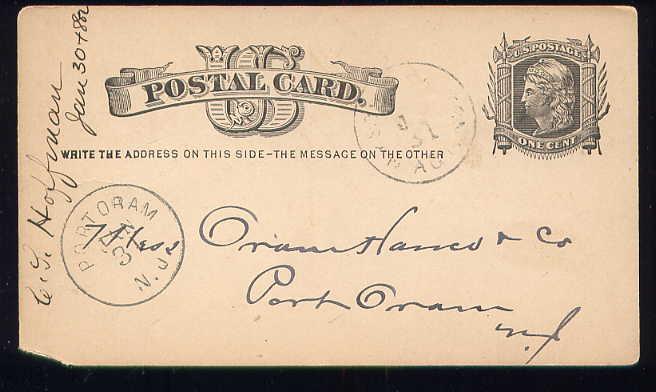 C. S. Hoffman
Jan 30th 82
US
POSTAL CARD.
U.S. POSTAGE
ONE CENT
WRITE THE ADDRESS ON THIS SIDE-THE MESSAGE ON THE OTHER
31
PORT ORAM
N.J.
Mess Oram Hance & Co
Port Oram
N J